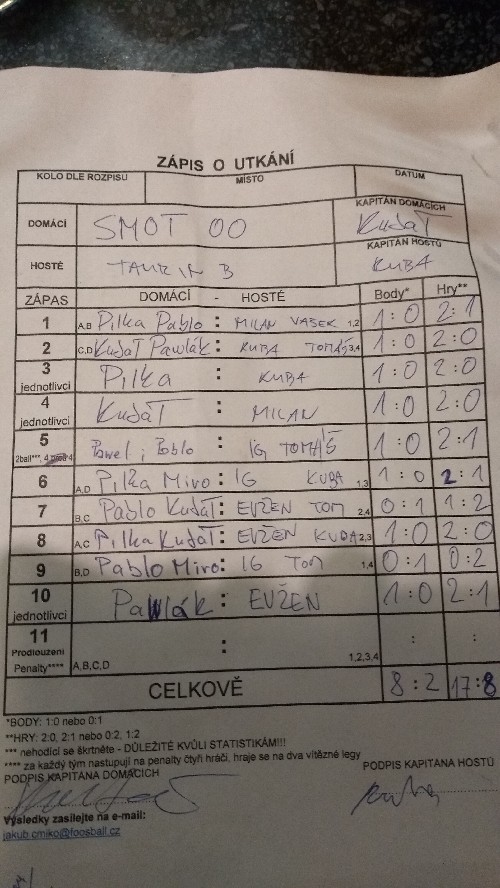 ZÁPIS O UTKÁNÍ
KOLO DLE ROZPISU MÍSTO DATUM
DOMÁCÍ SMOT OO KAPITÁN DOMÁCÍCH Kudat
HOSTÉ TAURIN B KAPITÁN HOSTŮ KUBA
ZÁPAS DOMÁCÍ - HOSTÉ Body* Hry**
1 A,B Pilka Pablo : MILAN VAŠEK 1,2 1:0 2:1
2 C,D Kudat Pawlák : KUBA TOMÁŠ 3,4 1:0 2:0
3 jednotlivci Pilka : KUBA 1:0 2:0
4 jednotlivci Kudat : MILAN 1:0 2:0
5 2ball***, Pawel i Pablo : IG TOMÁŠ 1:0 2:1
6 A,D Pilka Miro : IG KUBA 1,3 1:0 2:1
7 B,C Pablo Kudat : EVŽEN TOM 2,4 0:1 1:2
8 A,C Pilka Kudat : EVŽEN KUBA 2,3 1:0 2:0
9 B,D Pablo Miro : IG TOM 1,4 0:1 0:2
10 jednotlivci Pawlák : EVŽEN 1:0 2:1
11 Prodloužení Penalty**** A,B,C,D : 1,2,3,4 : :
CELKOVĚ 8:2 17:8
*BODY: 1:0 nebo 0:1
**HRY: 2:0, 2:1 nebo 0:2, 1:2
*** nehodící se škrtněte - DŮLEŽITÉ KVŮLI STATISTIKÁM!!!
**** za každý tým nastupují na penalty čtyři hráči, hraje se na dva vítězné legy
PODPIS KAPITÁNA DOMÁCÍCH PODPIS KAPITÁNA HOSTŮ
Výsledky zasílejte na e-mail:
jakub.cmiko@foosball.cz